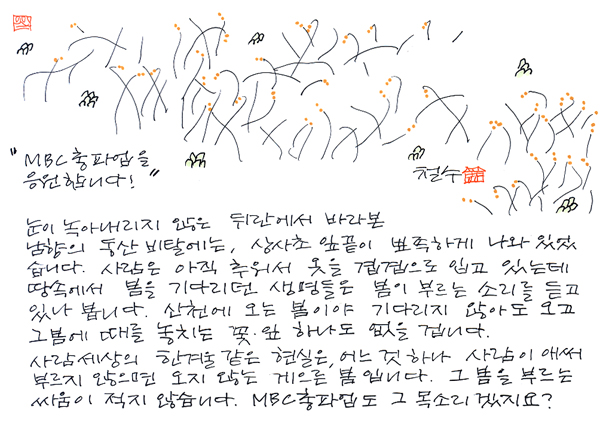 "MBC총파업을
응원합니다!"
철수
눈이 녹아내리지 않은 뒤란에서 바라본
남향의 동산 비탈에는, 상사초 잎끝이 뾰족하게 나와 있었
습니다. 사람은 아직 추워서 옷을 겹겹으로 입고 있는데
땅속에서 봄을 기다리던 생명들은 봄이 부르는 소리를 듣고
있나 봅니다. 산천에 오는 봄이야 기다리지 않아도 오고
그봄에 때를 놓치는 꽃·잎 하나도 없을 겁니다.
사람세상의 한겨울 같은 현실은, 어느 것 하나 사람이 애써
부르지 않으면 오지 않는 게으른 봄입니다. 그 봄을 부르는
싸움이 적지 않습니다. MBC총파업도 그 목소리겠지요?